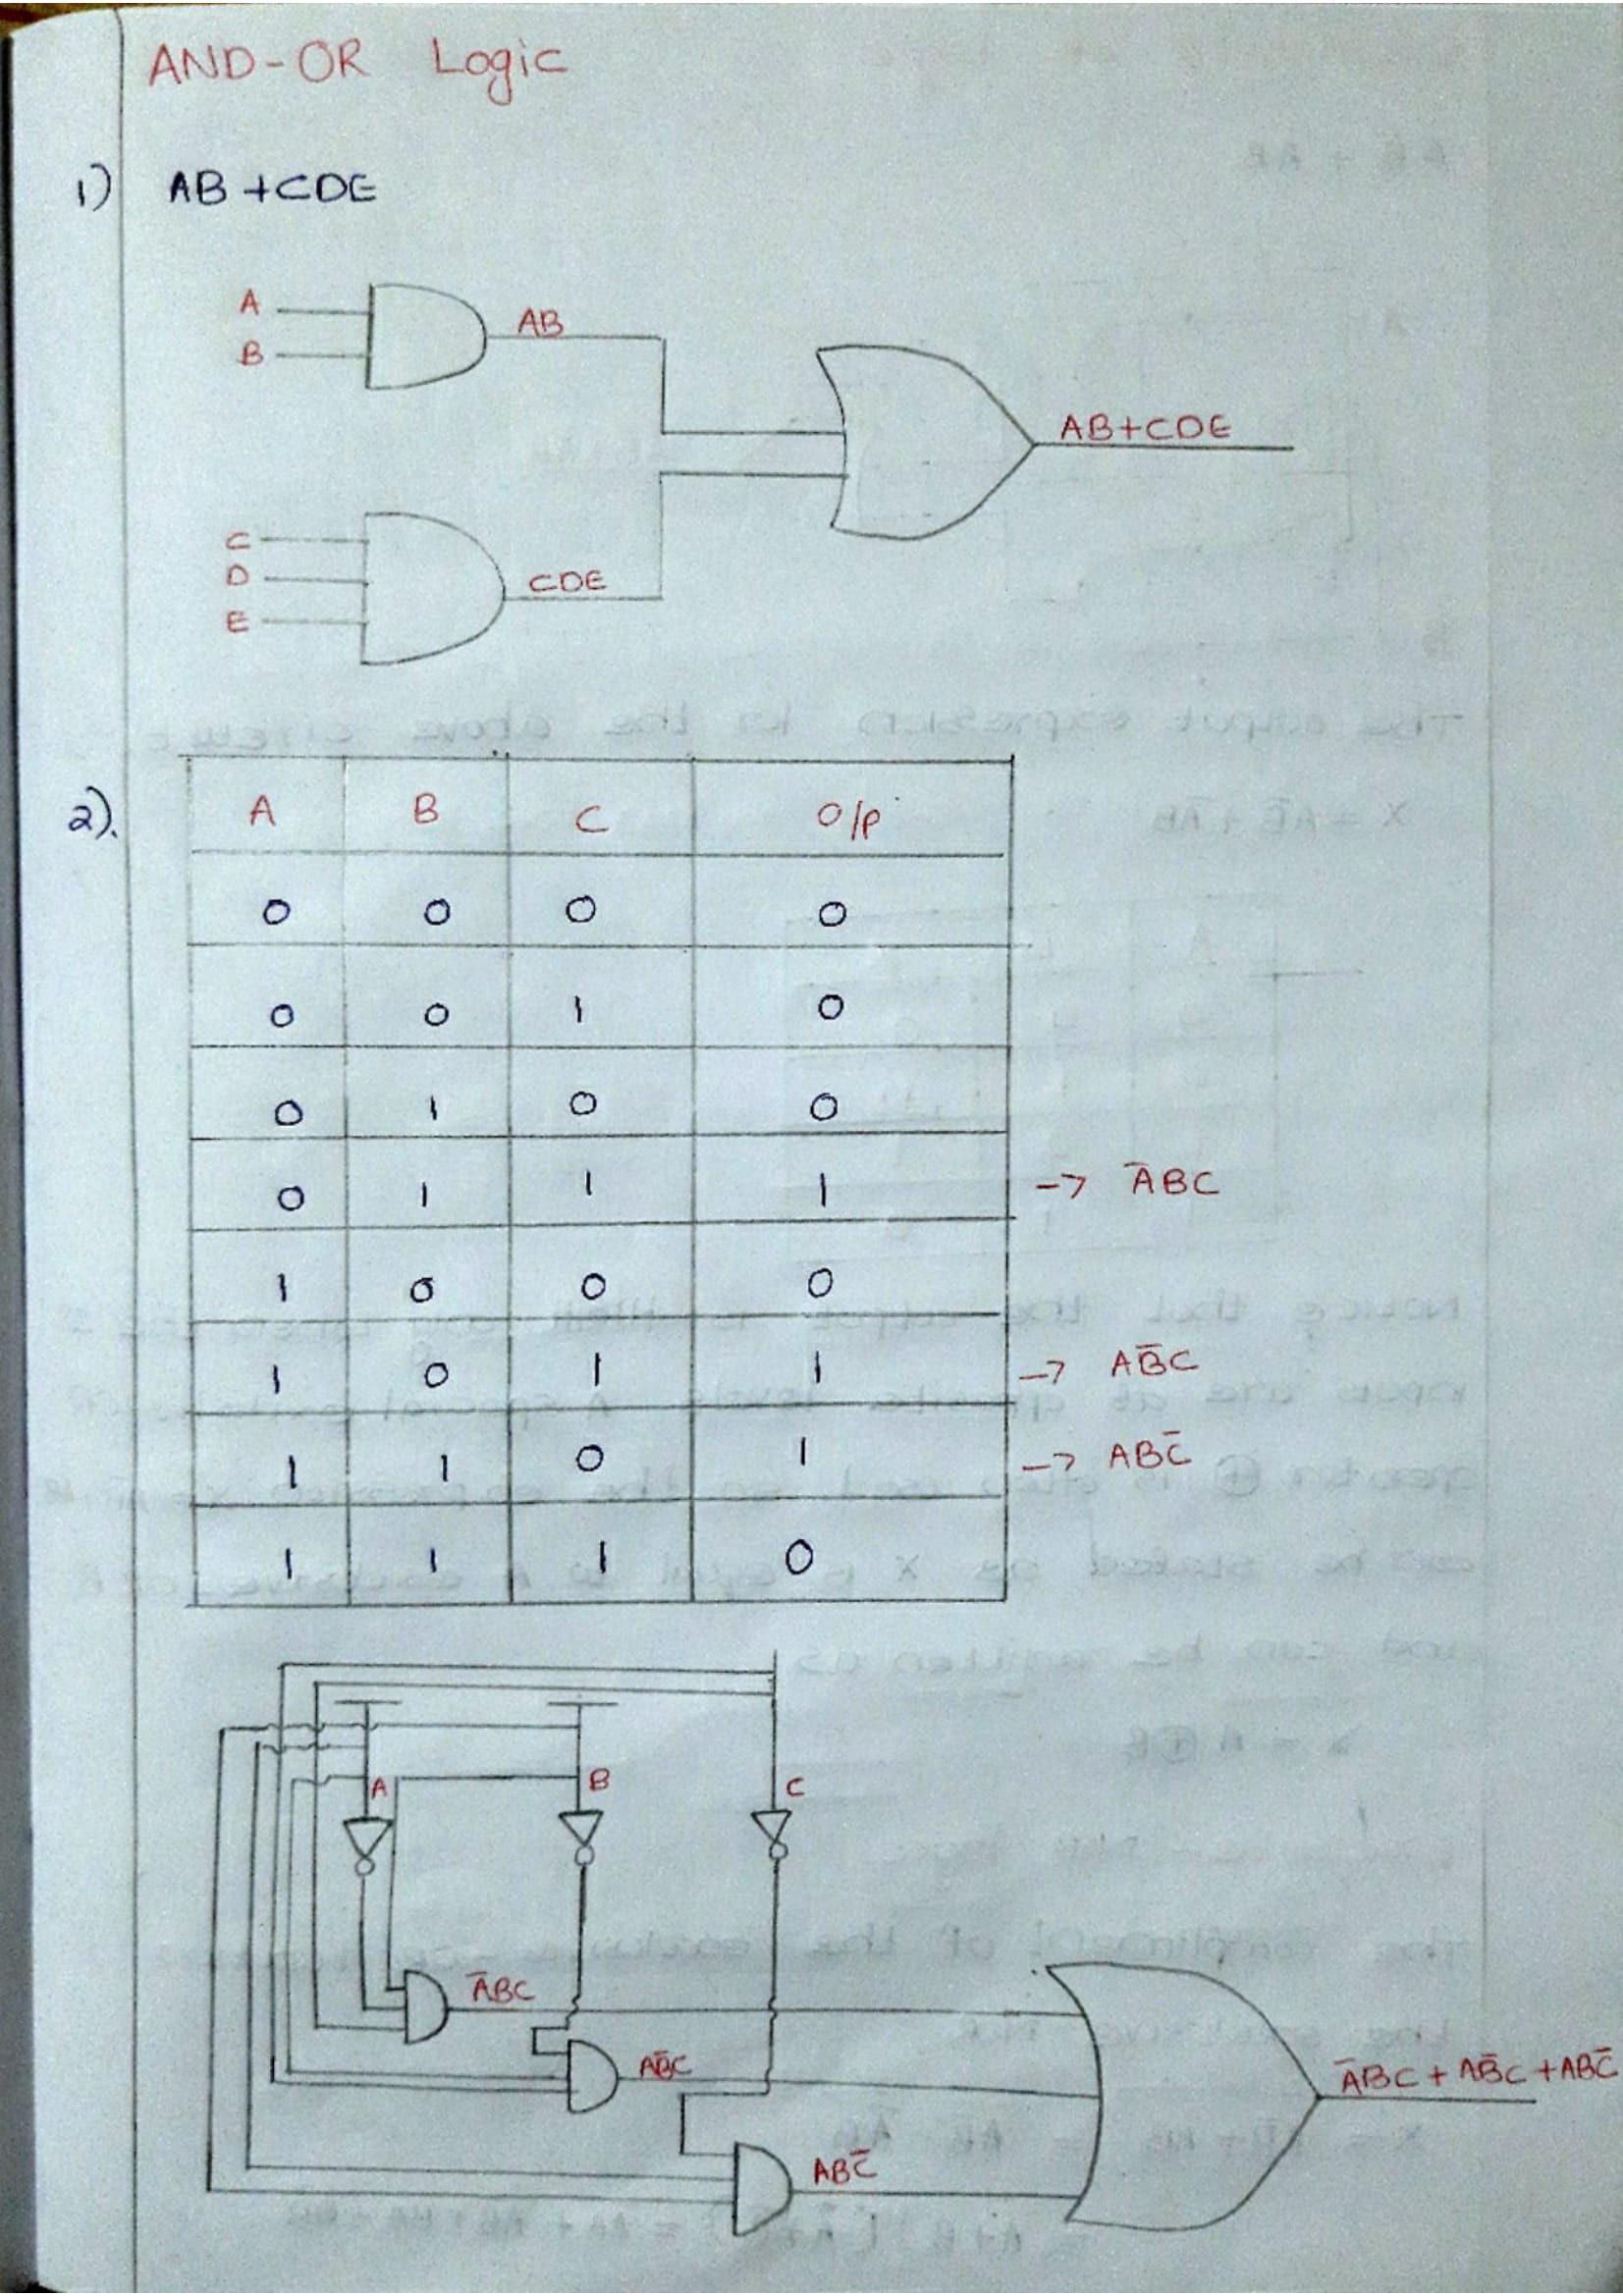 AND-OR Logic
1) AB+CDE
A
B
AB
AB+CDE
C
D
E
CDE
2).
A B C O/P
0 0 0 0
0 0 1 0
0 1 0 0
0 1 1 1 -> A̅BC
1 0 0 0
1 0 1 1 -> AB̅C
1 1 0 1 -> ABC̅
1 1 1 0
A B C
A̅BC
AB̅C
A̅BC + AB̅C + ABC̅
ABC̅